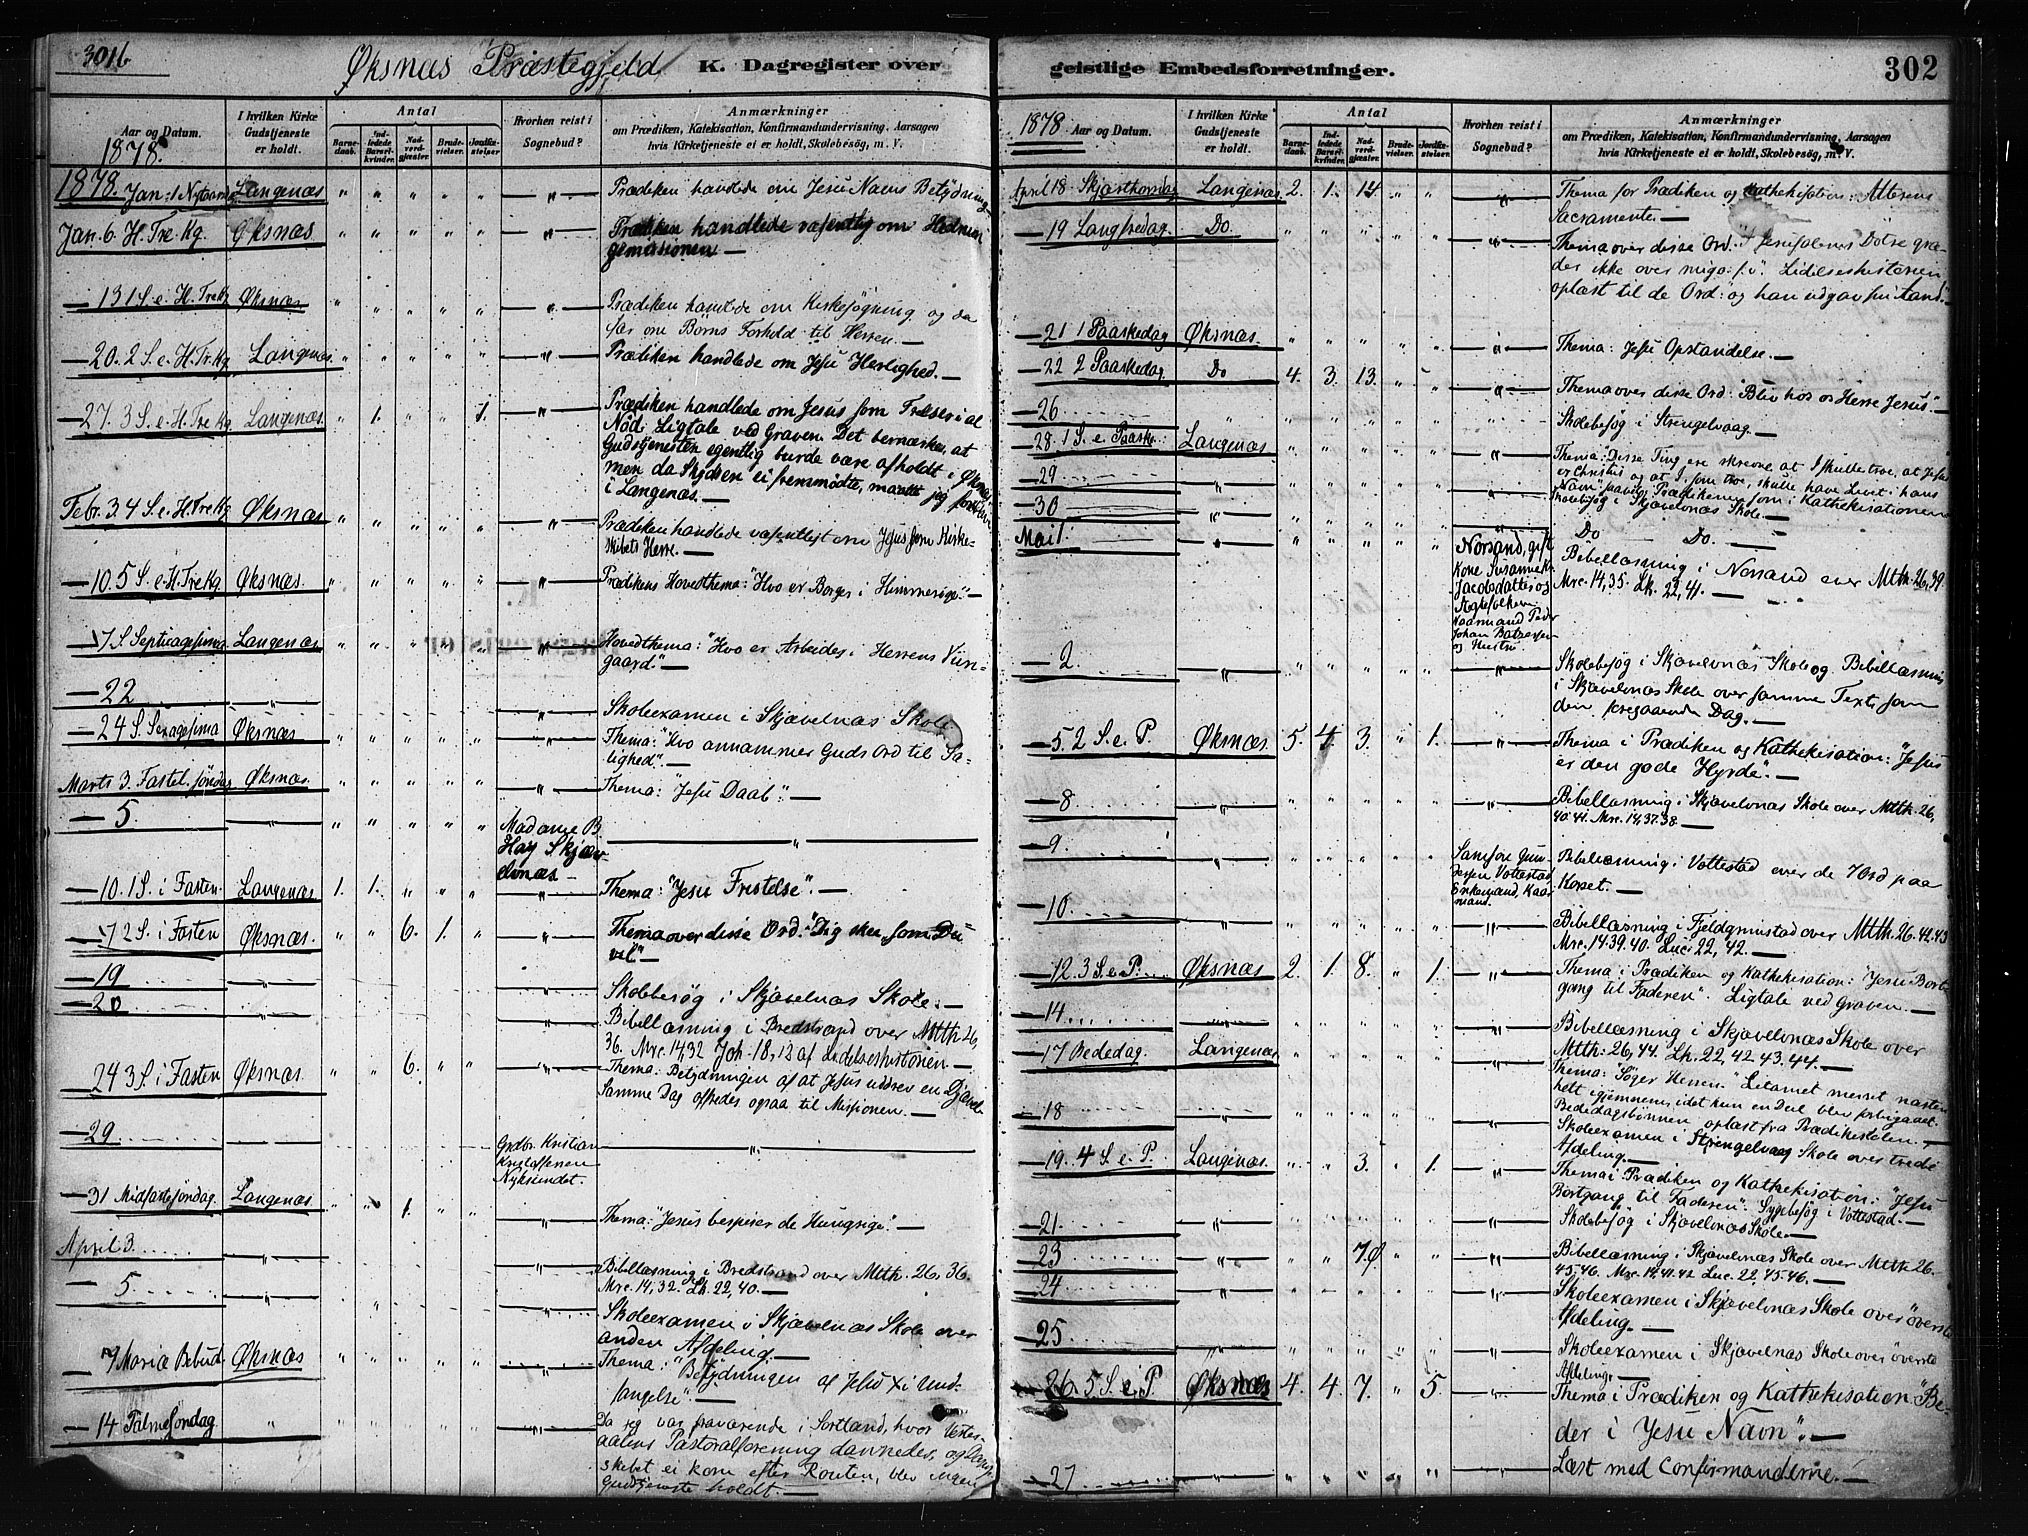 301b
Øksnæs Præstegjeld K. Dagregister over
Aar og Datum.
1878.
I hvilken Kirke
Gudstjeneste
er holdt.
Antal
Barne-
daab.
Ind-
ledede
Barsel-
kvinder.
Nad-
verd-
gjæster.
Brude-
vielser.
Jordfæ-
stelser.
Hvorhen reist i
Sognebud?
Anmærkninger
om Prædiken, Katekisation, Konfirmandundervisning, Aarsagen
hvis Kirketjeneste ei er holdt, Skolebesøg, m. V.
1878. Jan. 1 Nytaarsd. Langenæs " " " " " — " — Prædiken handlede om Jesu Navns Betydning —
Jan. 6. H. Tre Kg. Øksnæs " " " " " — " — Prædiken handlede væsentlig om Hednin-
gemissionen —
— 13 1 S. e. H. Tre Kg. Øksnæs " " " " " — " — Prædiken handlede om Kirkesøgning og da
især om Børns Forhold til Herren. —
— 20. 2 S. e. H. Tr. Kg. Langenæs " " " " " — " — Prædiken handlede om Jesu Herlighed. —
— 27. 3 S. e. H. Tre Kg. Langenæs. " 1. " " 1. — " — Prædiken handlede om Jesus som Frelser i al
Nød. Ligtale ved Graven. Det bemærkes, at
Gudstjenesten egentlig burde være afholdt i Øksnæs
men da Skydsen ei fremmødte, maatte jeg
i Langenæs. —
Febr. 3. 4 S. e. H. Tre Kg. Øksnæs " " " " " — " — Prædiken handlede væsentligst om Jesus som Kirke-
skibets Herre. —
— 10. 5 S. e. H. Tre Kg. Øksnæs " " " " " — " — Prædikens Hovedthema: "Hvo er Borger i Himmerige". —
— 17 S. Septuagesima Langenæs " " " " " — " — Hovedthema: "Hvo er Arbeider i Herrens Viin-
gaard" —
— 22 — " — — " — Skoleexamen i Skjævelnæs Skole
— 24 S. Sexagesima Øksnæs " " " " " — " — Thema: "Hvo annammer Guds Ord til Sa-
lighed". —
Marts 3. Fastel. søndag Øksnæs. " " " " " — " — Thema: "Jesu Daab". —
— 5 — " — " " " " " Madame B.
Hay Skjæv-
elnæs — — " —
— 10. 1 S. i Fasten. Langenæs 1. 1. " " " — " — Thema: "Jesu Fristelse". —
— 17 2 S. i Fasten Øksnæs. " " 6. 1. " — " — Thema over disse Ord: "Dig skee, som Du
vil" —
— 19 — " — — " — Skolebesøg i Skjævelnæs Skole. —
— 20 — " — — " — Bibellæsning i Bredstrand over Mtth. 26,
36. Mrc. 14,32 Joh. 18,12 af Lidelseshistorien —
— 24 3 S. i Fasten Øksnæs. " " 6. " " — " — Thema: Betydningen af at Jesus uddrev en Djævel.
Samme Dag ofredes ogsaa til Missionen. —
— 29 — — Grdbr. Kristian
Kristoffersen
Nyksundet — " —
— 31 Midfastesøndag. Langenæs " " 1. " " — " — Thema: "Jesus bespiser de Hungrige". —
April 3. — " — — " — Bibellæsning i Bredstrand over Mtth. 26, 36.
Mrc. 14, 32. Lk. 22, 40. —
— 5 — " — — " — Skoleexamen i Skjævelnæs Skole over
anden Afdeling. —
— 7 Mariæ Bebud. Øksnæs " " " " " — " — Thema: "Betydningen af Jesu Xi Und-
fangelse". —
— 14 Palmesøndag " " " " " " — " — Da jeg var fraværende i Sortland, hvor Vester-
aalens Pastoralforening dannedes, og Damp-
skibet ei kom efter Routen, blev ingen
Gudstjeneste holdt. —
geistlige Embedsforretninger. 302
1878 Aar og Datum.
I hvilken Kirke
Gudstjeneste
er holdt.
Antal
Barne-
daab.
Ind-
ledede
Barsel-
kvinder.
Nad-
verd-
gjæster.
Brude-
vielser.
Jordfæ-
stelser.
Hvorhen reist i
Sognebud?
Anmærkninger
om Prædiken, Katekisation, Konfirmandundervisning, Aarsagen
hvis Kirketjeneste ei er holdt, Skolebesøg, m. V.
April 18 Skjærthorsdag Langenæs. 2. 1. 14. " " — " — Thema for Prædiken og Kathekisation: Alterens
Sacramente. —
— 19 Langfredag. Do. " " " " " — " — Thema over disse Ord: "I Jerusalems Døtre græ-
der ikke over mig o: s. v. Lidelseshistorien
oplæst til de Ord: "og han udgav sin Aand".
— 21 1 Paaskedag Øksnæs. " " " " " — " — Thema: Jesu Opstandelse. —
— 22 2 Paaskedag. Do 4. 3. 13. " " — " — Thema over disse Ord: "Bliv hos os Herre Jesus". —
— 26 " " — " — Skolebesøg i Strengelvaag. —
— 28. 1 S. e. Paaske. Langenæs " " " " " — " — Thema: Disse Ting ere skrevne at I skulle troe, at Jesus
er Christus og at I, som troe, skulle have Livet i hans
Navn", saavel i Prædikenen som i Kathekisationen
— 29 — " — — " — Skolebesøg i Skjævelnæs Skole. —
— 30 — " — — " — Do — Do. —
Mai 1. — " — Norsand, gift
Kone Susanne
Jacobsdatter og
Ægtefolkene
Baarmand Peder
Johan Baltzersen
og Hustru Bibellæsning i Norsand over Mtth. 26, 39.
Mrc. 14, 35. Lk. 22, 41. —
— 2 — " — — " — Skolebesøg i Skjævelnæs Skole og Bibellæsning
i Skjævelnæs Skole over samme Text, som
den foregaaende Dag. —
— 5. 2 S. e. P. Øksnæs. 5. 4. 3. " 1. — " — Thema i Prædiken og Kathekisation: "Jesus
er den gode Hyrde". —
— 8 — " — — " — Bibellæsning i Skjævelnæs Skole over Mtth. 26,
40. 41. Mrc. 14,37.38. —
— 9. — " — Bibellæsning i Vottestad over de 7 Ord paa
Korset. —
— 10. — " — — " — Bibellæsning i Fjeldgrunstad over Mtth. 26. 42. 43
Mrc. 14. 39. 40. Luc. 22, 42. —
— 12. 3 S. e. P. Øksnæs 2. 1. 8. " 1. — " — Thema i Prædiken og Kathekisation: "Jesu Bort-
gang til Faderen". Ligtale ved Graven. —
— 14 — " — — " — Bibellæsning i Skjævelnæs Skole over
Mtth. 26, 44. Lk. 22 42. 43. 44. —
— 17 Bededag. Langenæs " " " " " — " — Thema: "Søger Herren".
Bededagsbønnen oplæst fra Prædikestolen. —
— 18 — " — — " — Skoleexamen i Strengelvaag Skole over tredie
Afdeling. —
— 19. 4 S. e. P. Langenæs. " " 3. " 1. — " — Thema i Prædiken og Kathekisation: "Jesu
Bortgang til Faderen". Sygebesøg i Vottestad. —
— 21. — " — — " — Skolebesøg i Skjævelnæs Skole. —
— 23 — " — — " — Bibellæsning i Skjævelnæs Skole over Mtth. 26.
45. 46. Mrc. 14, 41. 42. Luc. 22, 45. 46. —
— 24 — " — — " — Skoleexamen i Skjævelnæs Skole over øverste
Afdeling. —
— 25 — " — — " — Skoleexamen i Skjævelnæs Skole over øverste
Afdeling. —
— 26. 5 S. e. P. Øksnæs 4. 4. 7. " 5. — " — Thema i Prædiken og Kathekisation "Be-
der i Jesu Navn". —
— 27 — " — — " — Læst med Confirmanderne. —